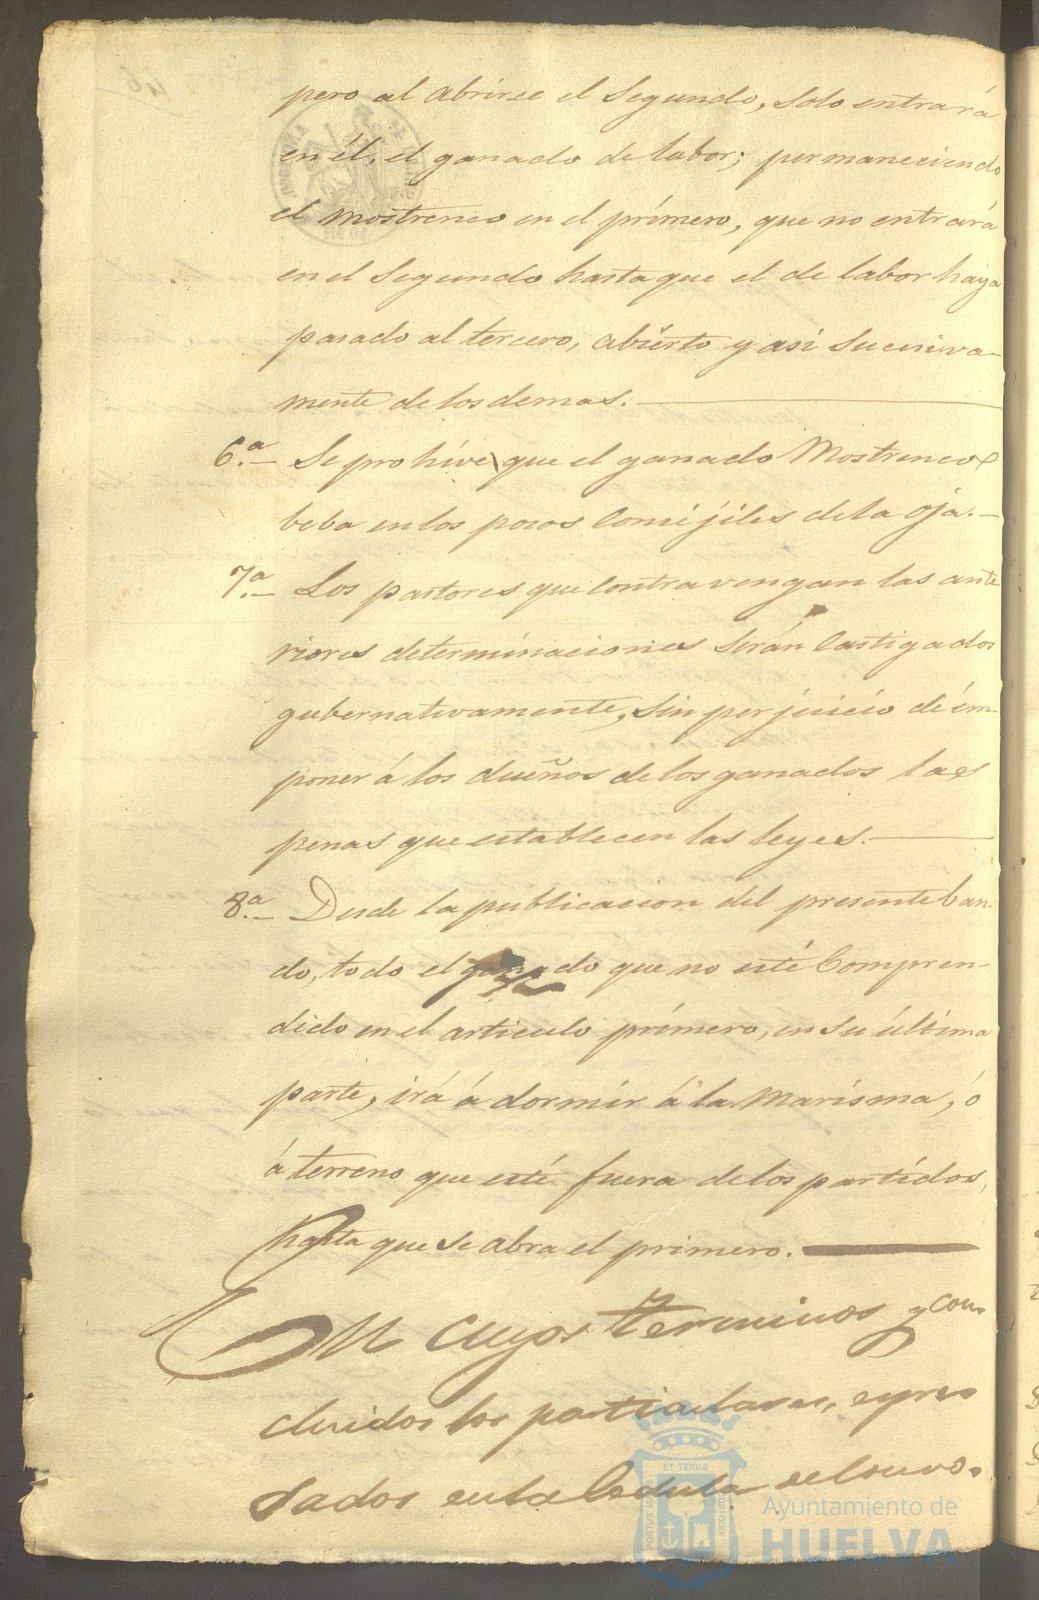 pero al abrirse el Segundo, solo entrará
en él, el ganado de labor; permaneciendo
el mostrenco en el prímero, que no entrará
en el Segundo hasta que el de labor haya
pasado al tercero, abierto y asi sucesiva-
mente de los demas.
6.ª Se prohive que el ganado Mostrenco
beba en los pozos Concejiles de la oja.
7.ª Los pastores que Contravengan las ante
riores determinaciones serán Castigados
gubernativamente, sin perjuicio de ím-
poner á los dueños de los ganados las
penas que establecen las leyes.
8.ª Desde la publicacion del presente ban-
do, todo el ganado que no esté Compren-
dido en el articulo prímero, en su última
parte, irá á dormir á la Marisma, ó
á terreno que esté fuera de los partídos,
hasta que se abra el primero.
En cuyos terminos y con
cluidos los particulares, espre
sados en la Cedula
ET TERRÆ
PORTUS MARIS
CUSTODIA
Ayuntamiento de
HUELVA